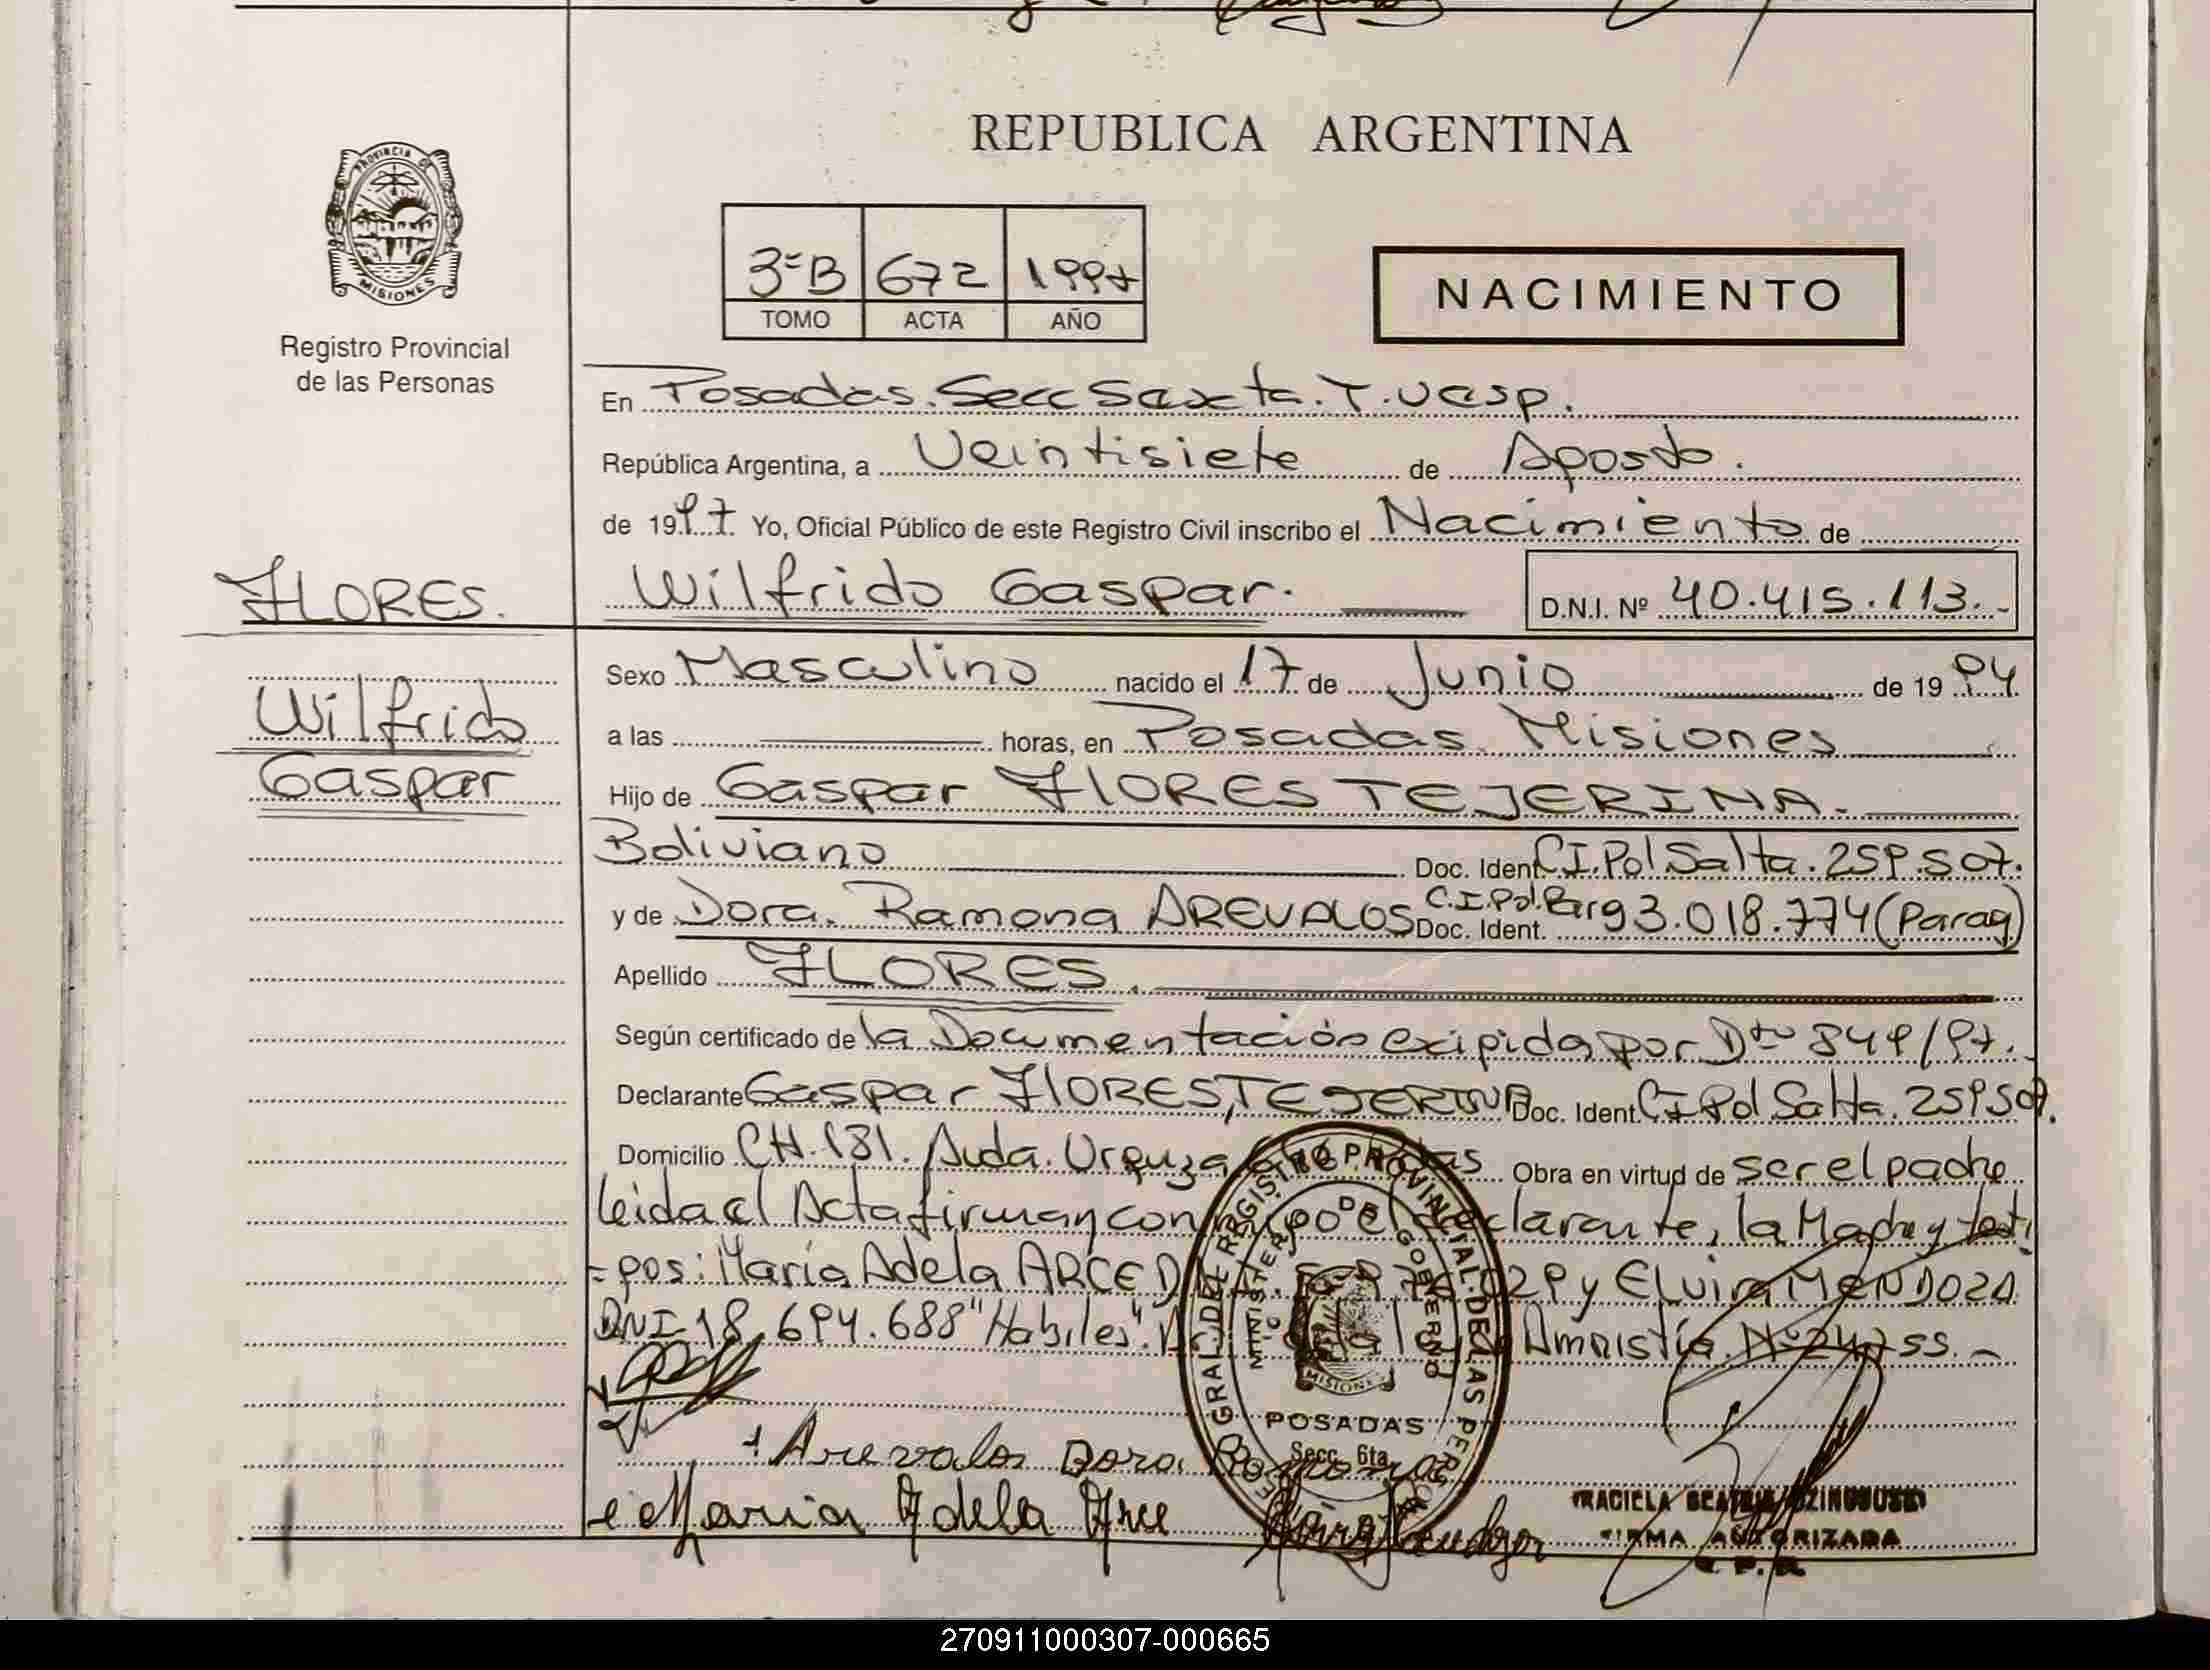 REPUBLICA ARGENTINA
PROVINCIA DE
MISIONES
Registro Provincial
de las Personas
3ºB 672 1997
TOMO ACTA AÑO
NACIMIENTO
En Posadas. Secc Sexta. T. Vesp.
República Argentina, a Veintisiete de Agosto.
de 1997. Yo, Oficial Público de este Registro Civil inscribo el Nacimiento de
FLORES. Wilfrido Gaspar. D.N.I. Nº 40.415.113.-
Sexo Masculino nacido el 17 de Junio de 1994
Wilfrido a las horas, en Posadas. Misiones
Gaspar Hijo de Gaspar FLORES TEJERINA.
Boliviano Doc. Ident. C.I. Pol Salta. 259.507.
y de Dora. Ramona AREVALOS Doc. Ident. C.I. Pol. Parg 3.018.774 (Parag)
Apellido FLORES.
Según certificado de la Documentación exigida por Dto 849/97.
Declarante Gaspar FLORES, TEJERINA Doc. Ident. C.I Pol Salta. 259507.
Domicilio CH. 181. Avda. Urquiza Obra en virtud de ser el padre
leida el Acta firman conmigo el declarante, la Madre y testi
-gos: María Adela ARCE y Elvira MENDOZA
DNI 18.694.688 "Habiles". Amnistía. Nº 24755.-
REGISTRO PROVINCIAL DE LAS PERSONAS
MINISTERIO DE GOBIERNO
MISIONES
POSADAS
Secc. 6ta
Arevalos Dora Ramona
Maria Adela Arce
FIRMA AUTORIZADA
270911000307-000665